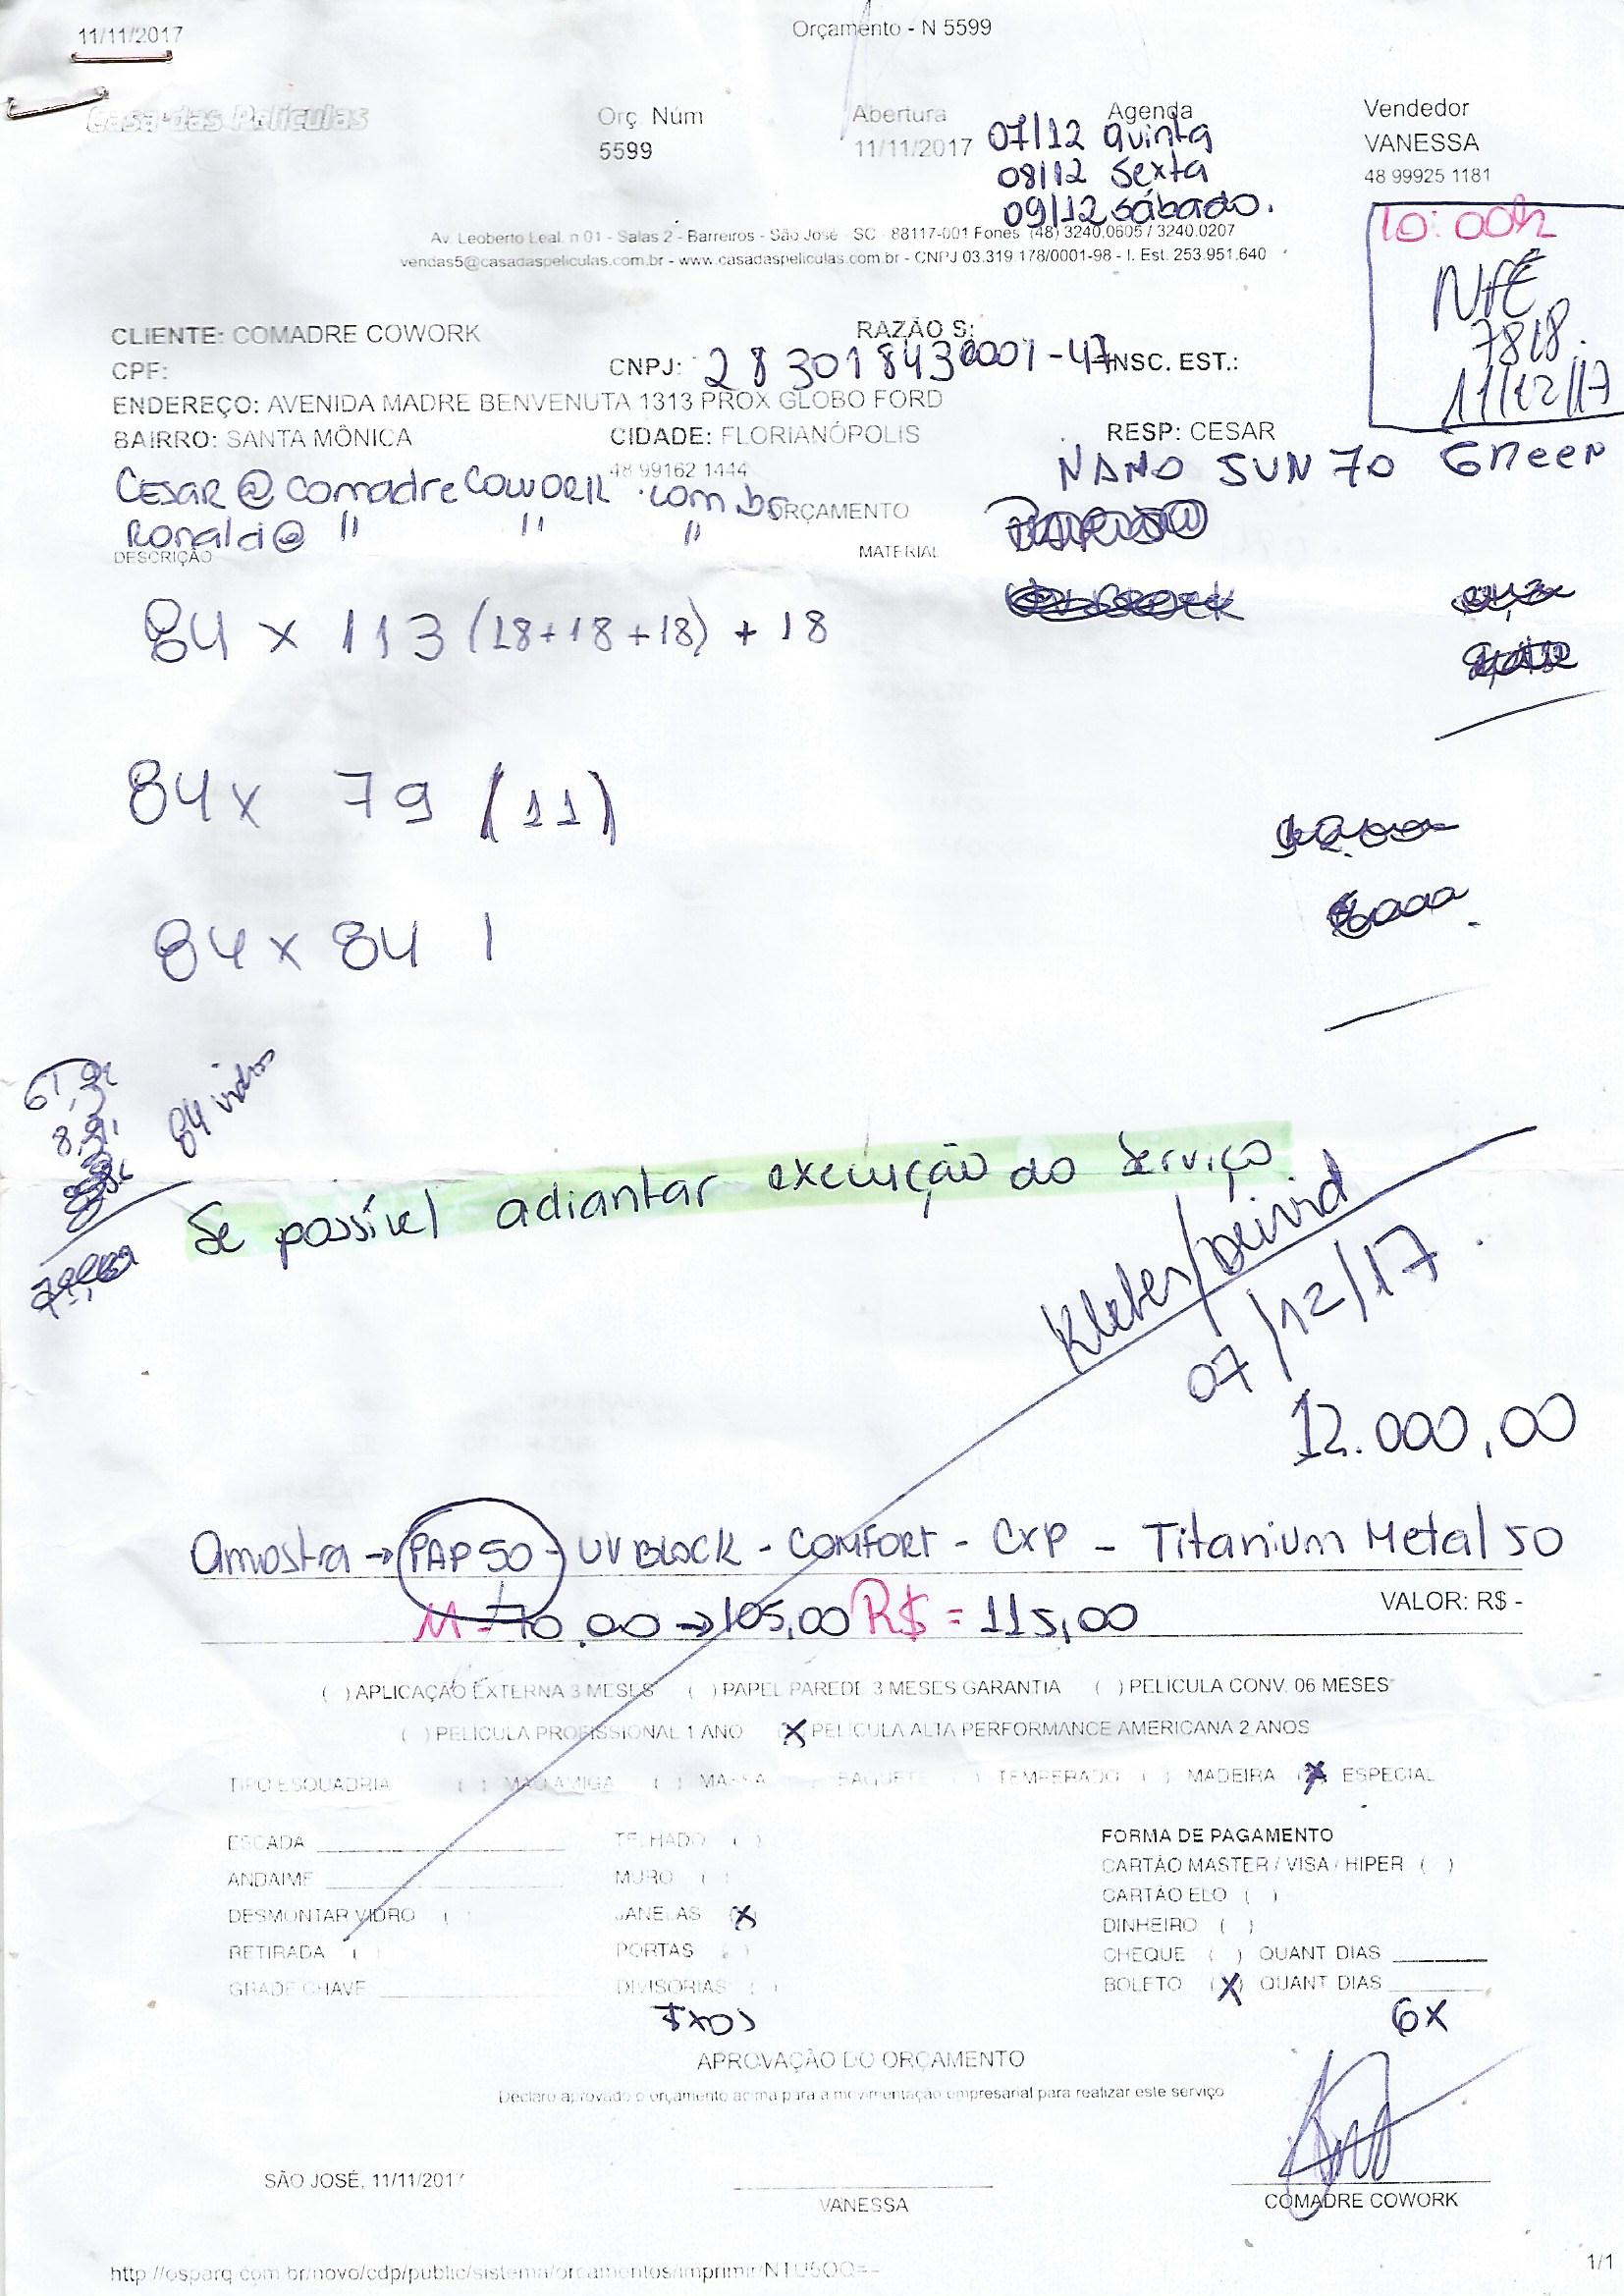 11/11/2017
Orçamento - N 5599
Casa das Películas
Orç Núm
5599
Abertura
11/11/2017
Agenda
07/12 Quinta
08/12 Sexta
09/12 Sábado.
Vendedor
VANESSA
48 99925 1181
Av. Leoberto Leal, n 01 - Salas 2 - Barreiros - São José - SC - 88117-001 Fones (48) 3240.0605 / 3240.0207
vendas5@casadaspeliculas.com.br - www.casadaspeliculas.com.br - CNPJ 03.319.178/0001-98 - I. Est. 253.951.640
10:00h
NFE
7818.
11/12/17
CLIENTE: COMADRE COWORK RAZÃO S:
CPF: CNPJ: 283018430001-47 INSC. EST.:
ENDEREÇO: AVENIDA MADRE BENVENUTA 1313 PROX GLOBO FORD
BAIRRO: SANTA MÔNICA CIDADE: FLORIANÓPOLIS RESP: CESAR
48 99162 1444
NANO SUN 70 GREEN
Cesar@comadrecowork.com.br
ORÇAMENTO
Ronald@ " " "
DESCRIÇÃO MATERIAL
84 x 113 (18+18+18) + 18
84 x 79 (11)
84 x 84 1
84 vidros
Se possível adiantar execução do serviço
Kleber/Deivid
07/12/17.
12.000,00
Amostra → PAP 50 - UV BLOCK - COMFORT - CXP - Titanium Metal 50
M - 70,00 → 105,00 R$ = 115,00
VALOR: R$ -
( ) APLICAÇÃO EXTERNA 3 MESES ( ) PAPEL PAREDE 3 MESES GARANTIA ( ) PELÍCULA CONV. 06 MESES
( ) PELÍCULA PROFISSIONAL 1 ANO (X) PELÍCULA ALTA PERFORMANCE AMERICANA 2 ANOS
TIPO ESQUADRIA ( ) MAO AMIGA ( ) MASSA ( ) BAQUETE ( ) TEMPERADO ( ) MADEIRA (X) ESPECIAL
ESCADA TELHADO ( ) FORMA DE PAGAMENTO
ANDAIME MURO ( ) CARTÃO MASTER / VISA / HIPER ( )
CARTÃO ELO ( )
DESMONTAR VIDRO ( ) JANELAS (X) DINHEIRO ( )
RETIRADA ( ) PORTAS ( ) CHEQUE ( ) QUANT DIAS
GRADE CHAVE DIVISÓRIAS ( ) BOLETO (X) QUANT DIAS
6X
APROVAÇÃO DO ORÇAMENTO
Declaro aprovado o orçamento acima para a movimentação empresarial para realizar este serviço
SÃO JOSÉ, 11/11/2017
VANESSA
COMADRE COWORK
http://osparq.com.br/novo/cdp/public/sistema/orcamentos/imprimir/NTU5OQ==
1/1